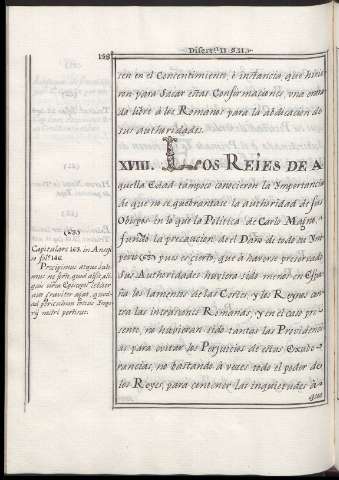 198
Disert.n II. §. II.
ren en el Consentimiento, è instancia, que hicie
ron para Sacar estas Confirmaciones, una entra
da libre à los Romanos para la abdicacion de
sus authoridades.
XVIII. LOS REIES DE A
quella Edad tampoco conocieron la Ymportancia
de que no se quebrantase la authoridad de sus
Obispos en lo que la Politica de Carlo Magn.
fundò la precaucion de el Daño de todo su Ym
perio (633) pues es cierto, que à haverse preservado
Sus Authoridades huviera sido menor en Espa
ña los lamentos de las Cortes, y los Reynos con
tra las intrusiones Romanas, y en el caso pre
sente, no huvieran sido tantas las Providencias
para evitar los Perjuicios de estas Exube
rancias, no bastando à veces todo el poder de
los Reyes, para contener las inquietudes à-
que
(633)
Capitulare 163. in
fol. 140.
Precipimus atque
mus ne forte, quod absit, ali
quis
gravitér
periculum totius Impe
rij nostri pertineat.